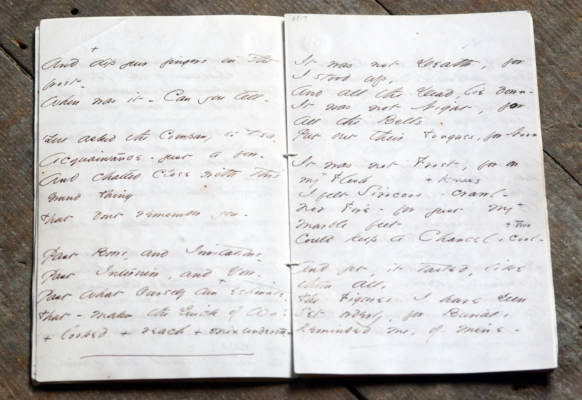 +
And dip your fingers in the
frost -
When was it - Can you tell -
You asked the Company to tea -
Acquaintance - just a few -
And chatted close with this
Grand Thing
That don't remember you -
Past Bows, and Invitations -
Past Interview, and Vow -
Past what Ourself can + estimate -
That - makes the Quick of Wo!
+ reach +
It was not Death, for
I stood up,
And all the Dead, lie down -
It was not Night, for
all the Bells
Put out their Tongues, for Noon
It was not Frost, for on
my + Flesh + Knees
I felt Siroccos - crawl -
Nor Fire - for just my +
Marble feet + two
Could keep a Chancel, cool -
And yet, it tasted, like
them all,
The Figures I have seen
Set orderly, for Burial,
Reminded me, of mine -